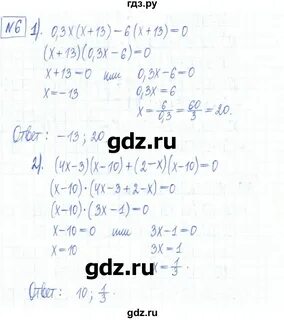 гдз.ру
№6 1). 0,3x(x+13)-6(x+13)=0
(x+13)(0,3x-6)=0
x+13=0 или 0,3x-6=0
x=-13 0,3x=6
x=6/0,3=60/3=20.
Ответ: -13; 20
2). (4x-3)(x-10)+(2-x)(x-10)=0
(x-10)·(4x-3+2-x)=0
(x-10)·(3x-1)=0
x-10=0 или 3x-1=0
x=10 3x=1
x=1/3.
Ответ: 10; 1/3
гдз.ру